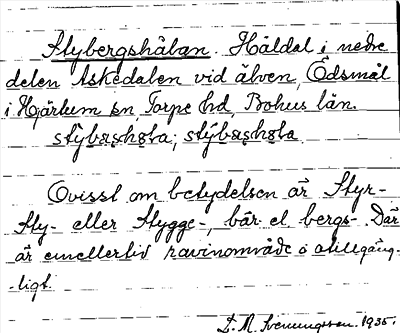 Stybergshålan. Håldal i nedre
delen Askedalen vid älven, Ödsmål
i Hjärtum sn, Torpe hd, Bohus län.
Ovisst om betydelsen är Styr-
Sty- eller Stygge-, bär el bergs-. Där
är emellertid ravinområde o otillgäng-
-ligt.
D. M. Svenningsson. 1935.